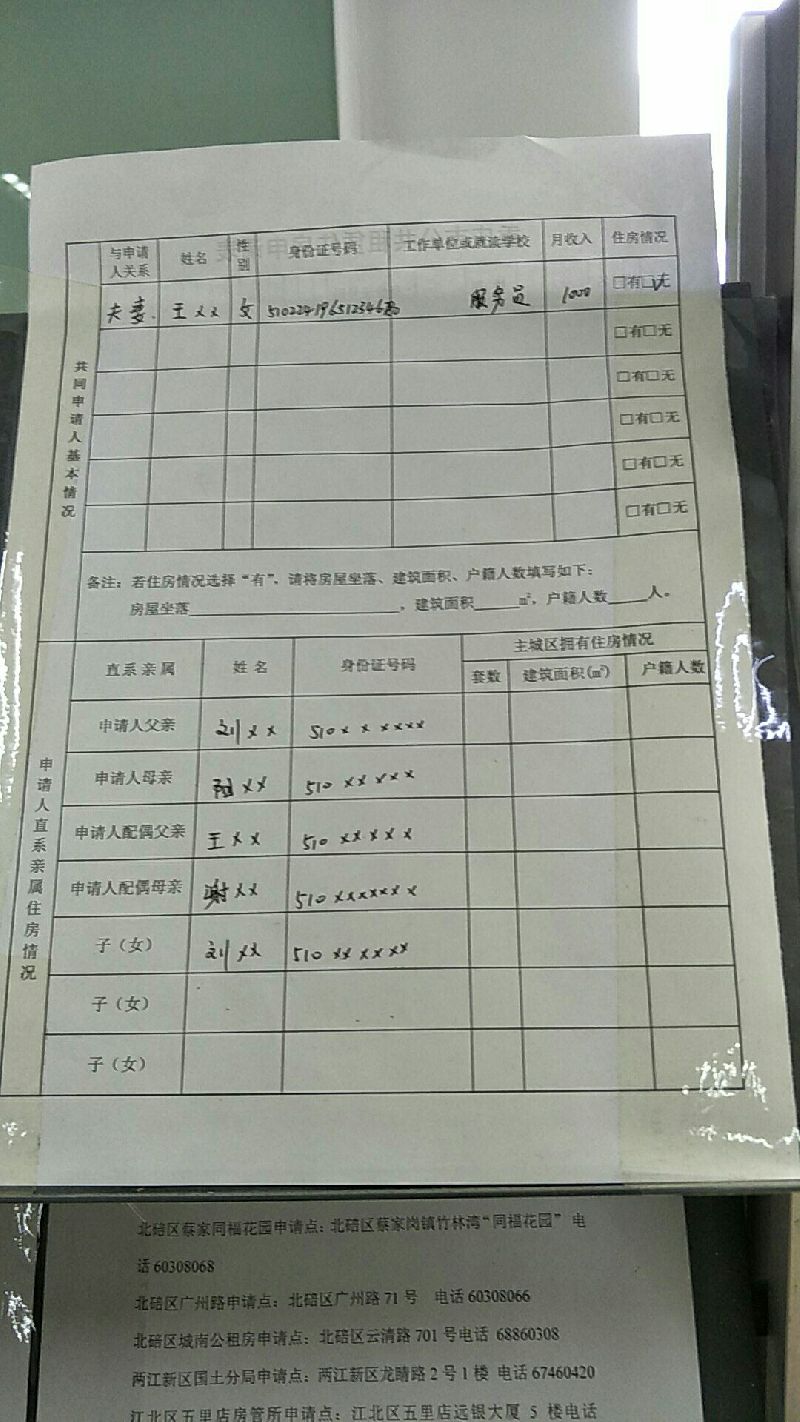 共同申请人基本情况
与申请人关系 姓名 性别 身份证号码 工作单位或就读学校 月收入 住房情况
夫妻 王×× 女 服务员 1000 □有□无
□有□无
□有□无
□有□无
□有□无
□有□无
备注：若住房情况选择“有”，请将房屋坐落、建筑面积、户籍人数填写如下：
房屋坐落________，建筑面积____㎡，户籍人数____人。
申请人直系亲属住房情况
直系亲属 姓名 身份证号码 主城区拥有住房情况
套数 建筑面积(㎡) 户籍人数
申请人父亲 刘×× 510××××××
申请人母亲 ×× 510×××××
申请人配偶父亲 王×× 510×××××
申请人配偶母亲 谢×× 510×××××××
子（女） 刘×× 510××××××
子（女）
子（女）
北碚区蔡家同福花园申请点：北碚区蔡家岗镇竹林湾“同福花园” 电
话 60308068
北碚区广州路申请点：北碚区广州路 71 号 电话 60308066
北碚区城南公租房申请点：北碚区云清路 701 号电话 68860308
两江新区国土分局申请点：两江新区龙晴路 2 号 1 楼 电话 67460420
江北区五里店房管所申请点：江北区五里店远银大厦 5 楼电话